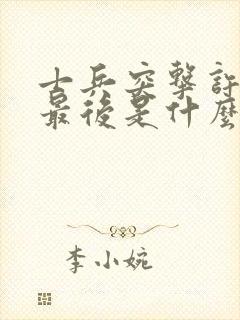 士兵突擊許
最後是什麼
李小婉